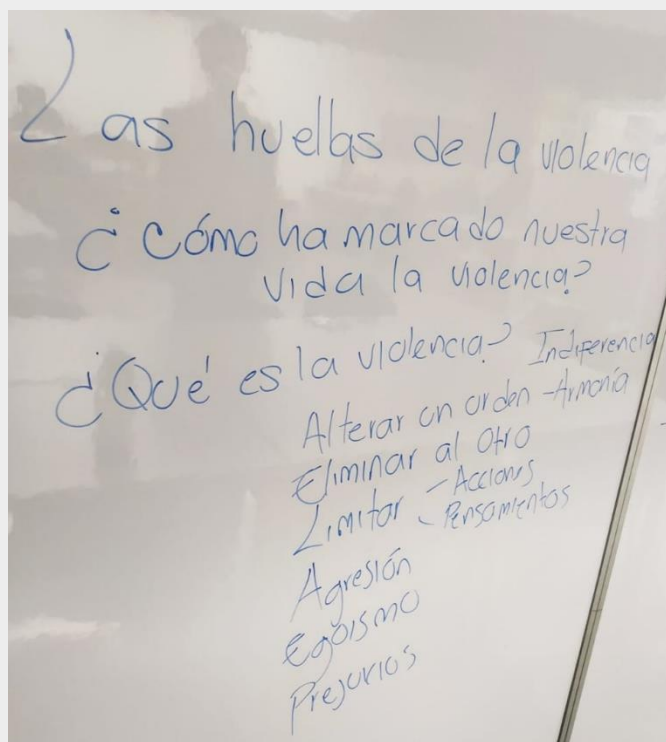 Las huellas de la violencia
¿Cómo ha marcado nuestra
vida la violencia?
¿Qué es la violencia? Indiferencia
Alterar un orden - Armonía
Eliminar al Otro
Limitar - Acciones
- Pensamientos
Agresión
Egoismo
Prejuicios